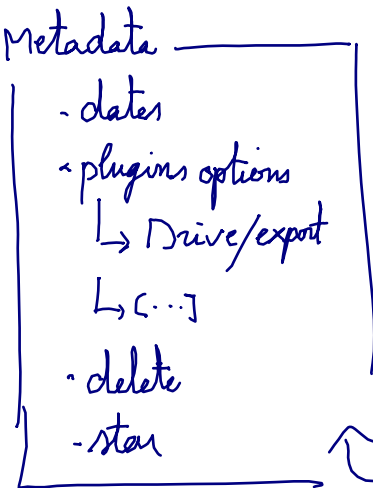 Metadata
- dates
- plugins options
↳ Drive/export
↳ [...]
- delete
- star